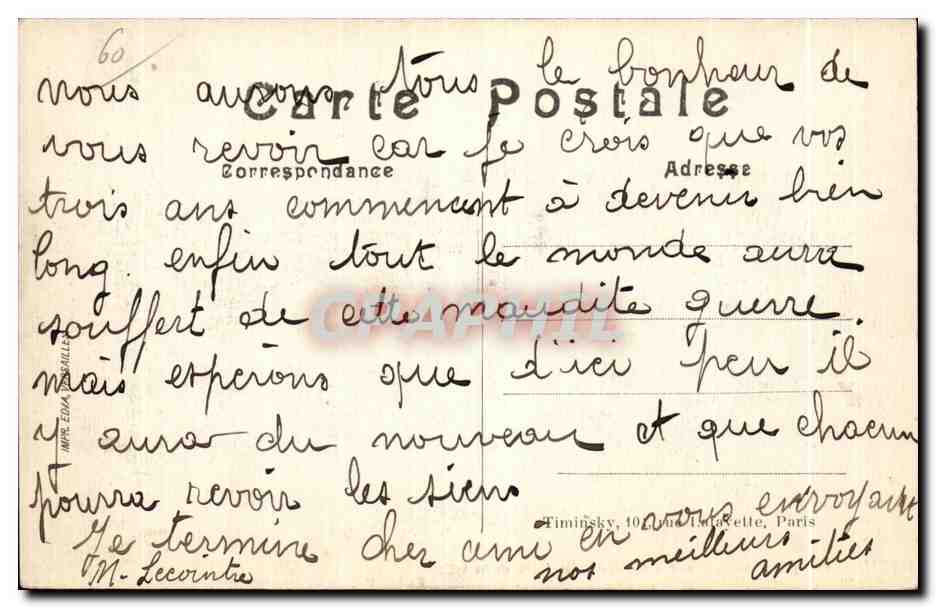 60
nous aurons tous le bonheur de
Carte Postale
vous revoir car je crois que vos
Correspondance Adresse
trois ans commencent à devenir bien
long. enfin tout le monde aura
souffert de cette maudite guerre.
CPAPHIL
mais espérons que d'ici peu il
y aura du nouveau et que chacun
pourra revoir les siens
Je termine cher ami en vous envoyant
nos meilleurs amitiés
M. Lecointre
Timinsky, 10, rue Lafayette, Paris
IMPR. EDIA, VERSAILLES